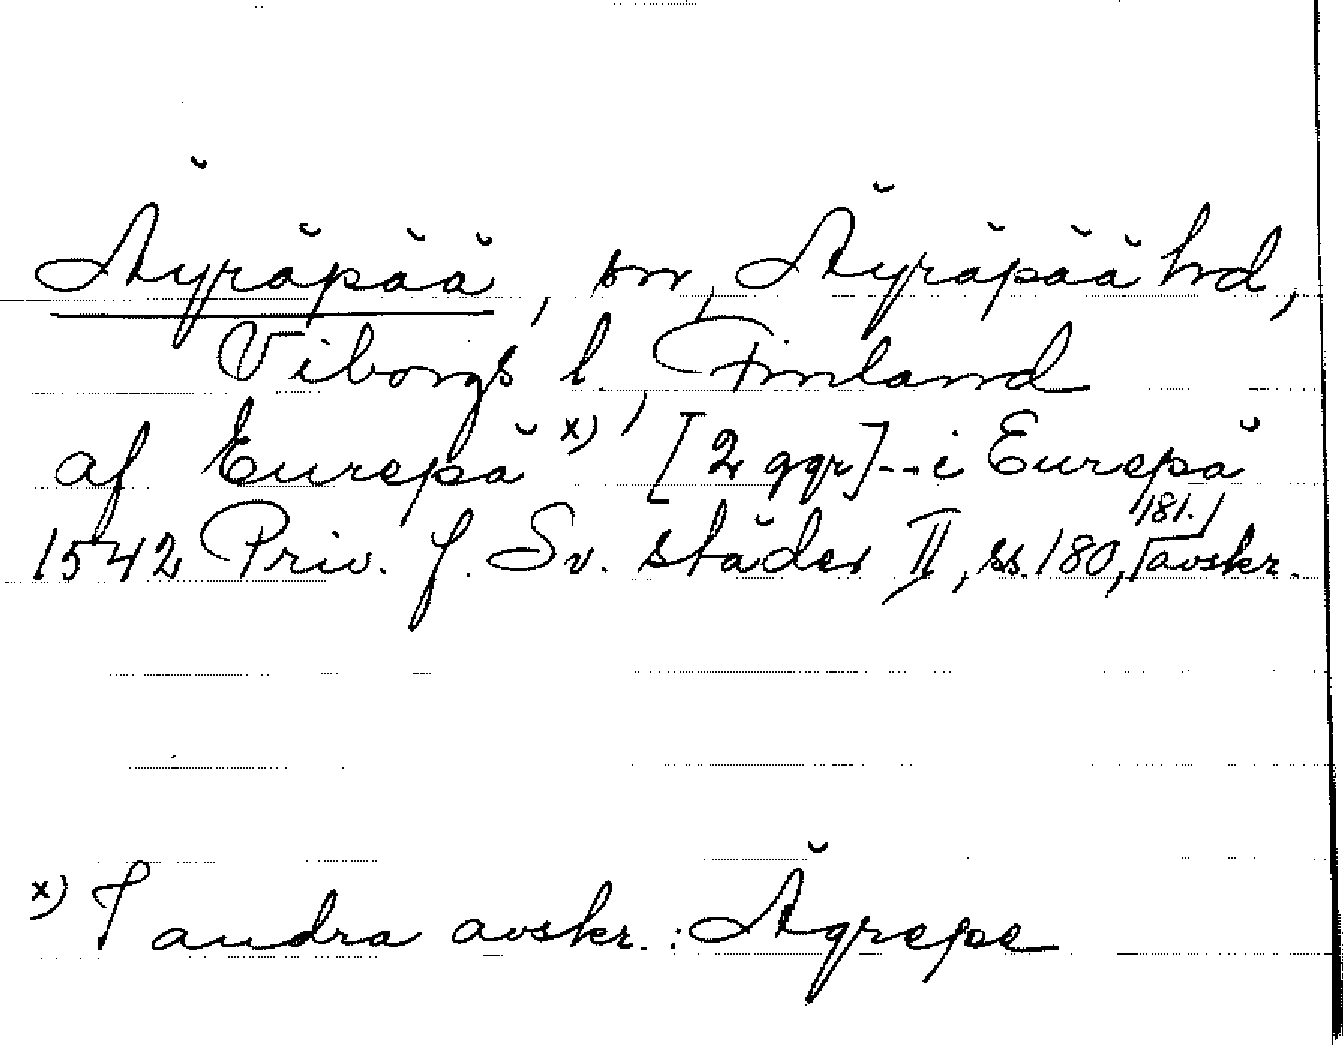 Äyräpää, sn, Äyräpää hd,
Viborgs l., Finland
af Eurepä x) [2 ggr] -- i Eurepä
1542 Priv. f. Sv. städer II, ss. 180, 181. / avskr.
x) I andra avskr. : Ägrepe